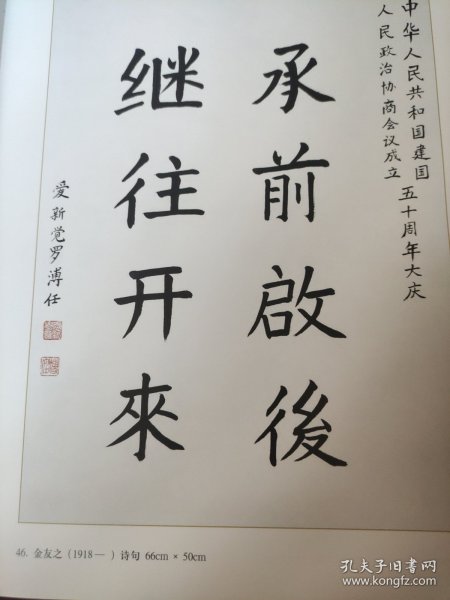 中华人民共和国建国 五十周年大庆
人民政治协商会议成立
承前啟後
继往开來
爱新觉罗溥任
46. 金友之（1918— ）诗句 66cm × 50cm
孔夫子旧书网
www.kongfz.com